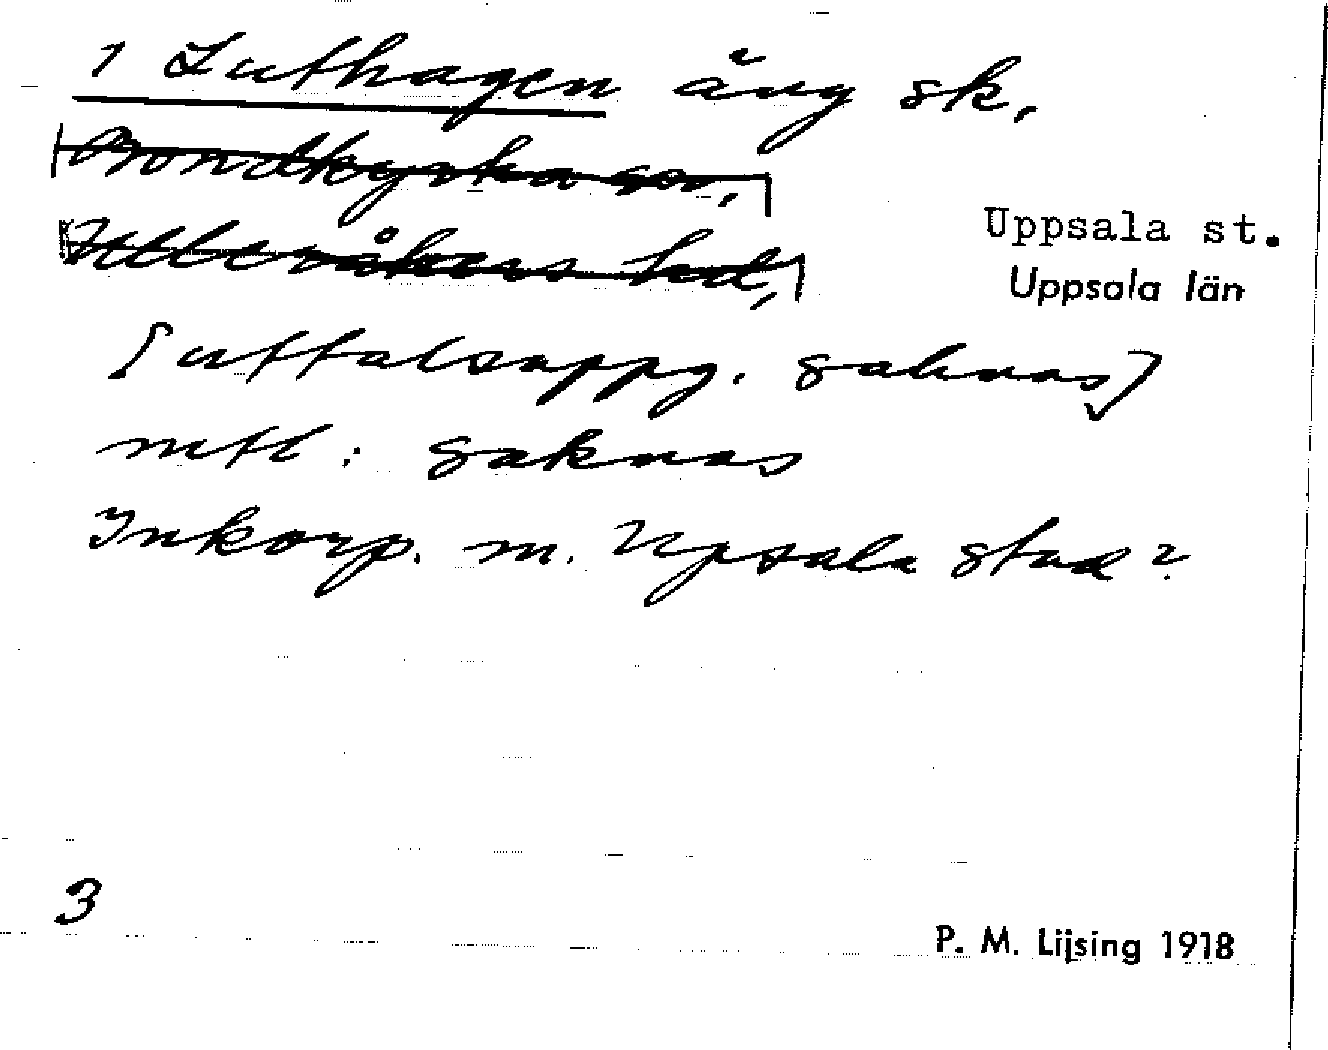 1 Luthagen äng sk,
Bondkyrka sn,
Ulleråkers hd,
Uppsala st.
Uppsala län
[uttalsuppg. saknas]
mtl: saknas
Inkorp. m. Upsala stad?
3
P. M. Lijsing 1918